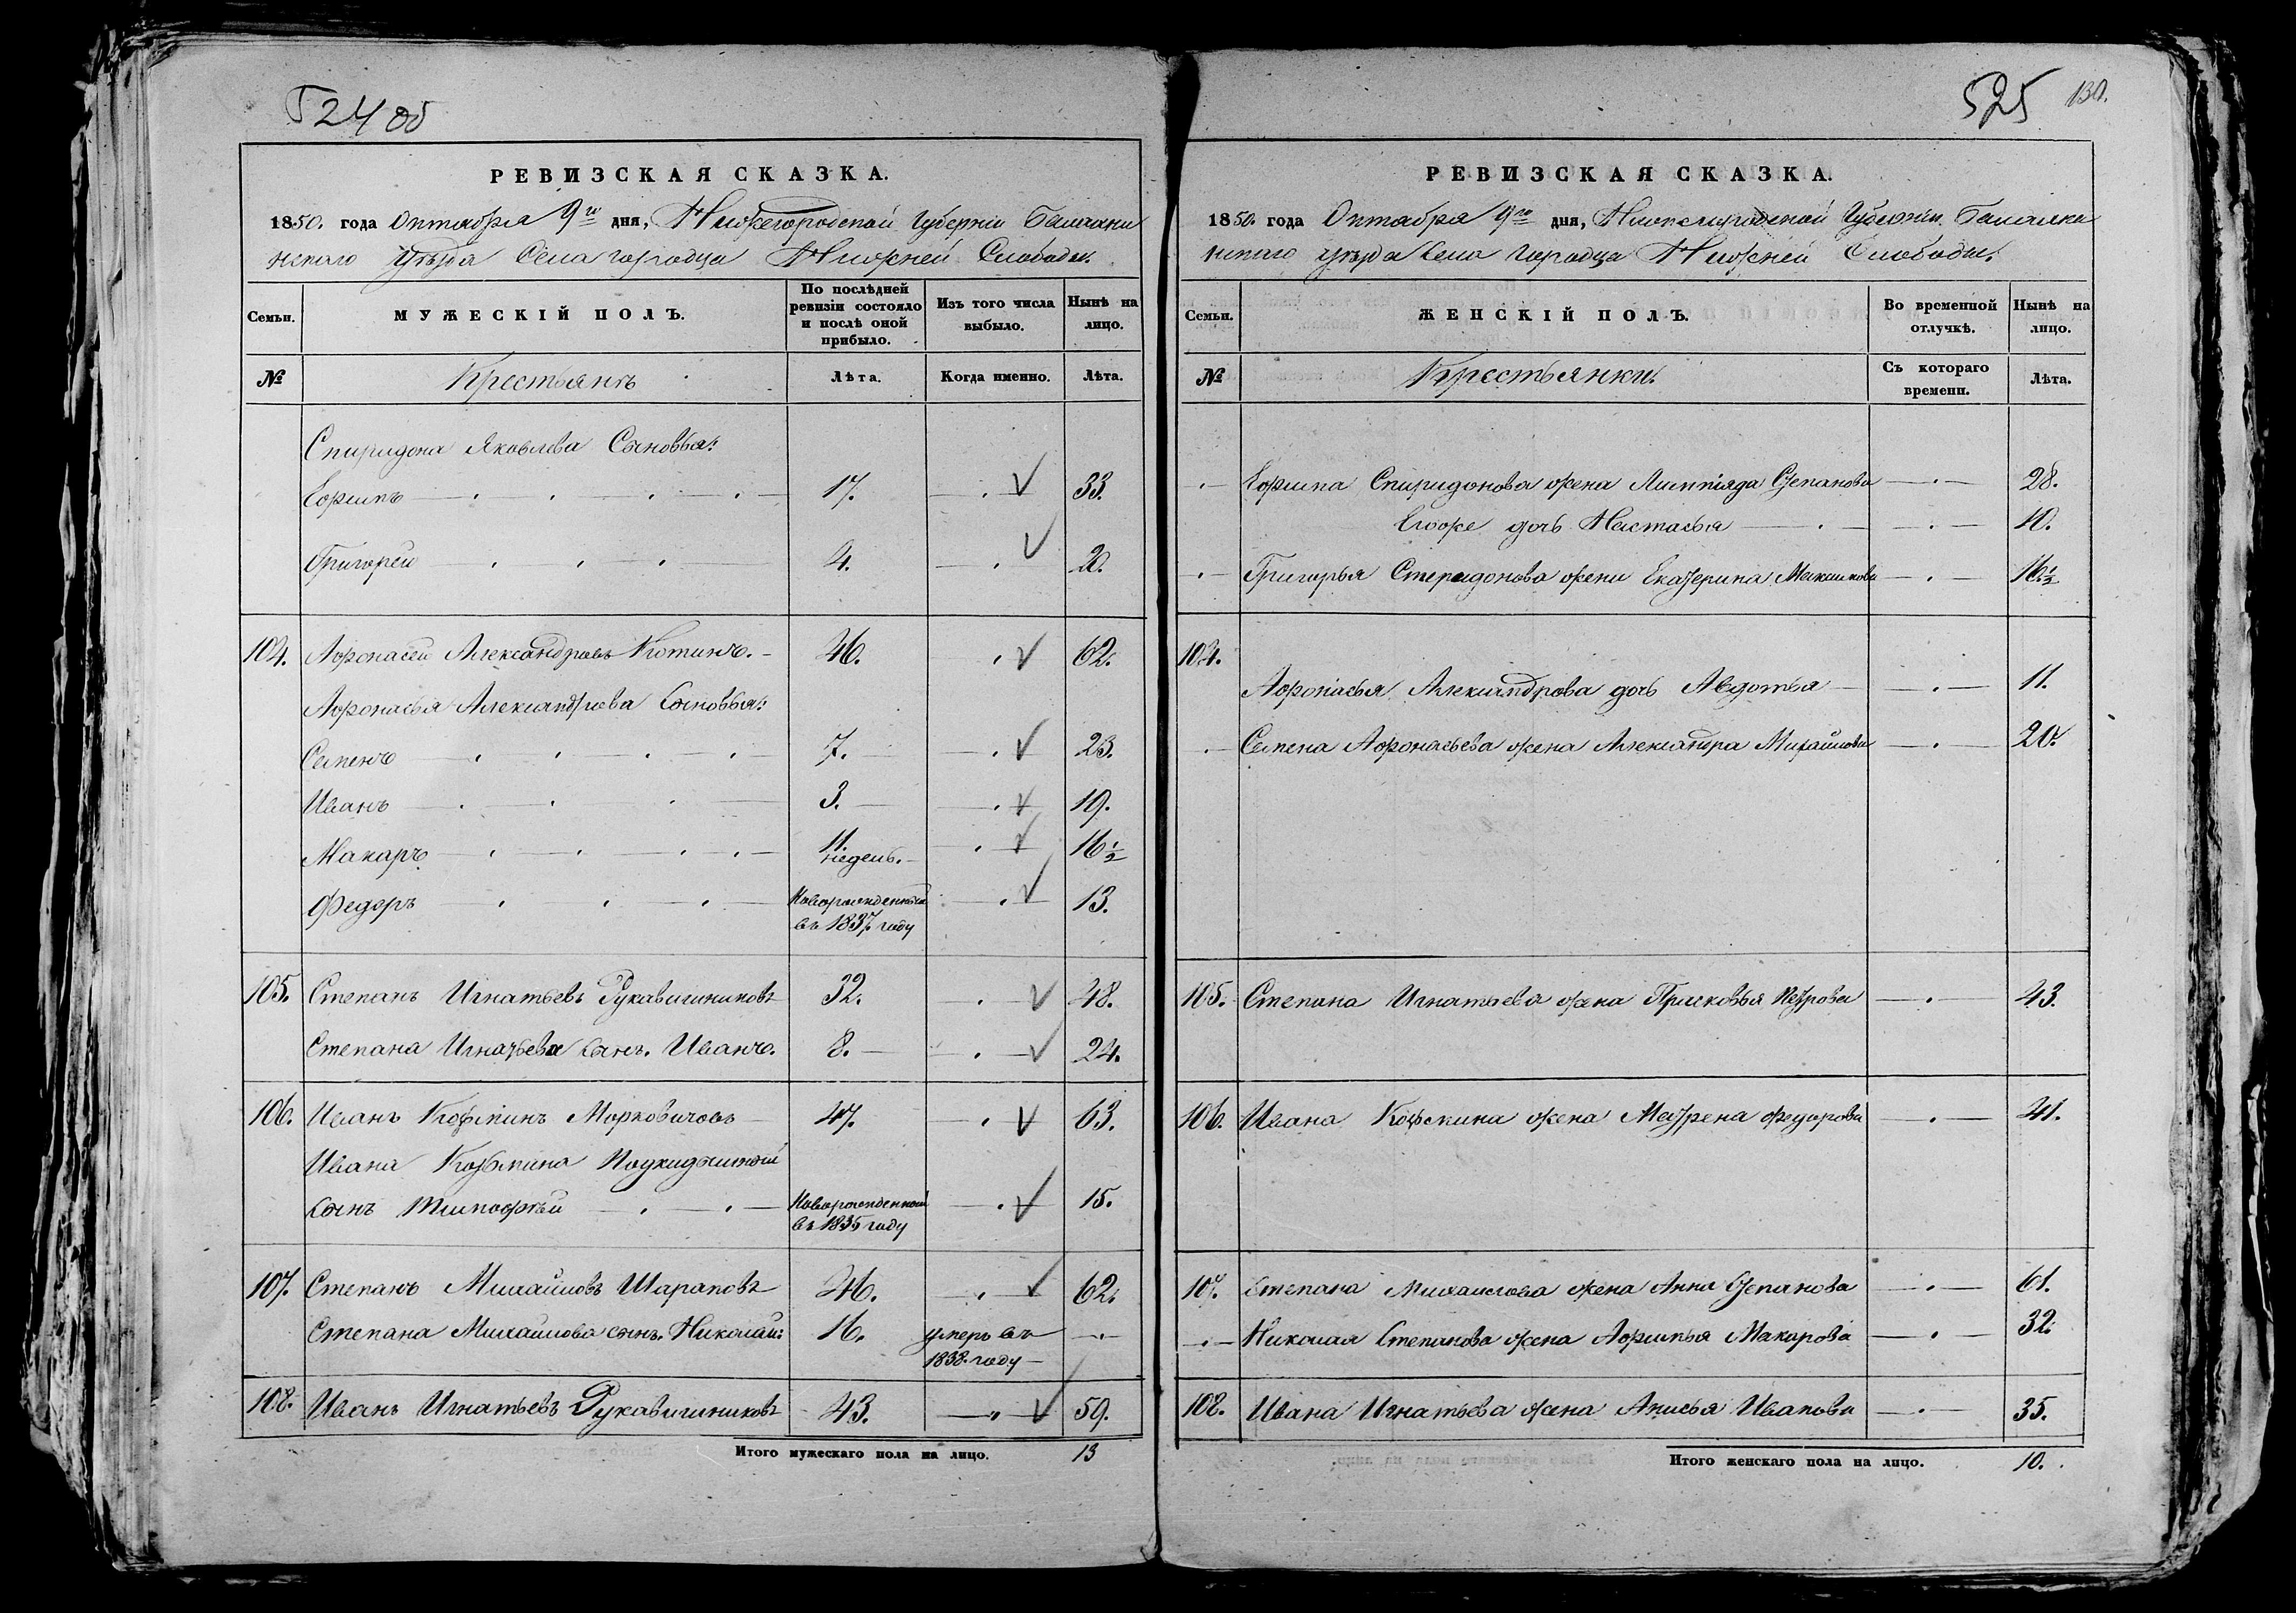 524 об
РЕВИЗСКАЯ СКАЗКА.
1850. года Октября 9го дня, Нижегородской Губерніи Балахни
нскаго Уѣзда Села городца Нижней Слободы.
Семьи.
МУЖЕСКІЙ ПОЛЪ.
По послѣдней ревизіи состояло и послѣ оной прибыло.
Изъ того числа выбыло.
Нынѣ на лицо.
№ Крестьянъ Лѣта. Когда именно. Лѣта.
Спиридона Яковлева Сыновья:
17. 33.
Григорей 4. 20.
104. Афонасей Александровъ 46. 62.
Афонасья Александрова Сыновья:
Семенъ 7. 23.
Иванъ 3. 19.
Макаръ 11. недель. 16 1/2
Федоръ Новорожденной въ 1837 году 13.
105. Степанъ Игнатьевъ Рукавишниковъ 32. 48.
Степана Игнатьева сынъ. Иванъ. 8. 24.
106. Иванъ Козминъ Морковичовъ 47. 63.
Ивана Козьмина Подкидышной
сынъ Тимофѣй Новорожденной въ 1835 году 15.
107. Степанъ Михайловъ Шараповъ 46. 62.
Степана Михайлова сынъ. Николай: 16. умеръ въ 1838. году
108. Иванъ Игнатьевъ Рукавишниковъ 43. 59.
Итого мужескаго пола на лицо. 13
525 130.
РЕВИЗСКАЯ СКАЗКА.
1850. года Октября 9го дня, Нижегородской Губерніи Балахни
нскаго уѣзда Села Городца Нижней Слободы.
Семьи.
ЖЕНСКІЙ ПОЛЪ.
Во временной отлучкѣ.
Нынѣ на лицо.
№ Крестьянки. Съ котораго времени. Лѣта.
Спиридонова жена Степанова 28.
Егоже дочь Настасья 10.
Григорья Спиридонова жена Екатерина 16 1/2
104.
Афонасья Александрова дочь Авдотья 11.
Семена Афонасьева жена Александра Михайлова 20.
105. Степана Игнатьева жена Прасковья Петрова 43.
106. Ивана жена Матрена Федорова 41.
107. Степана Михайлова жена Анна Степанова 61.
Николая Степанова жена Афимья Макарова 32.
108. Ивана Игнатьева жена Анисья Иванова 35.
Итого женскаго пола на лицо. 10.